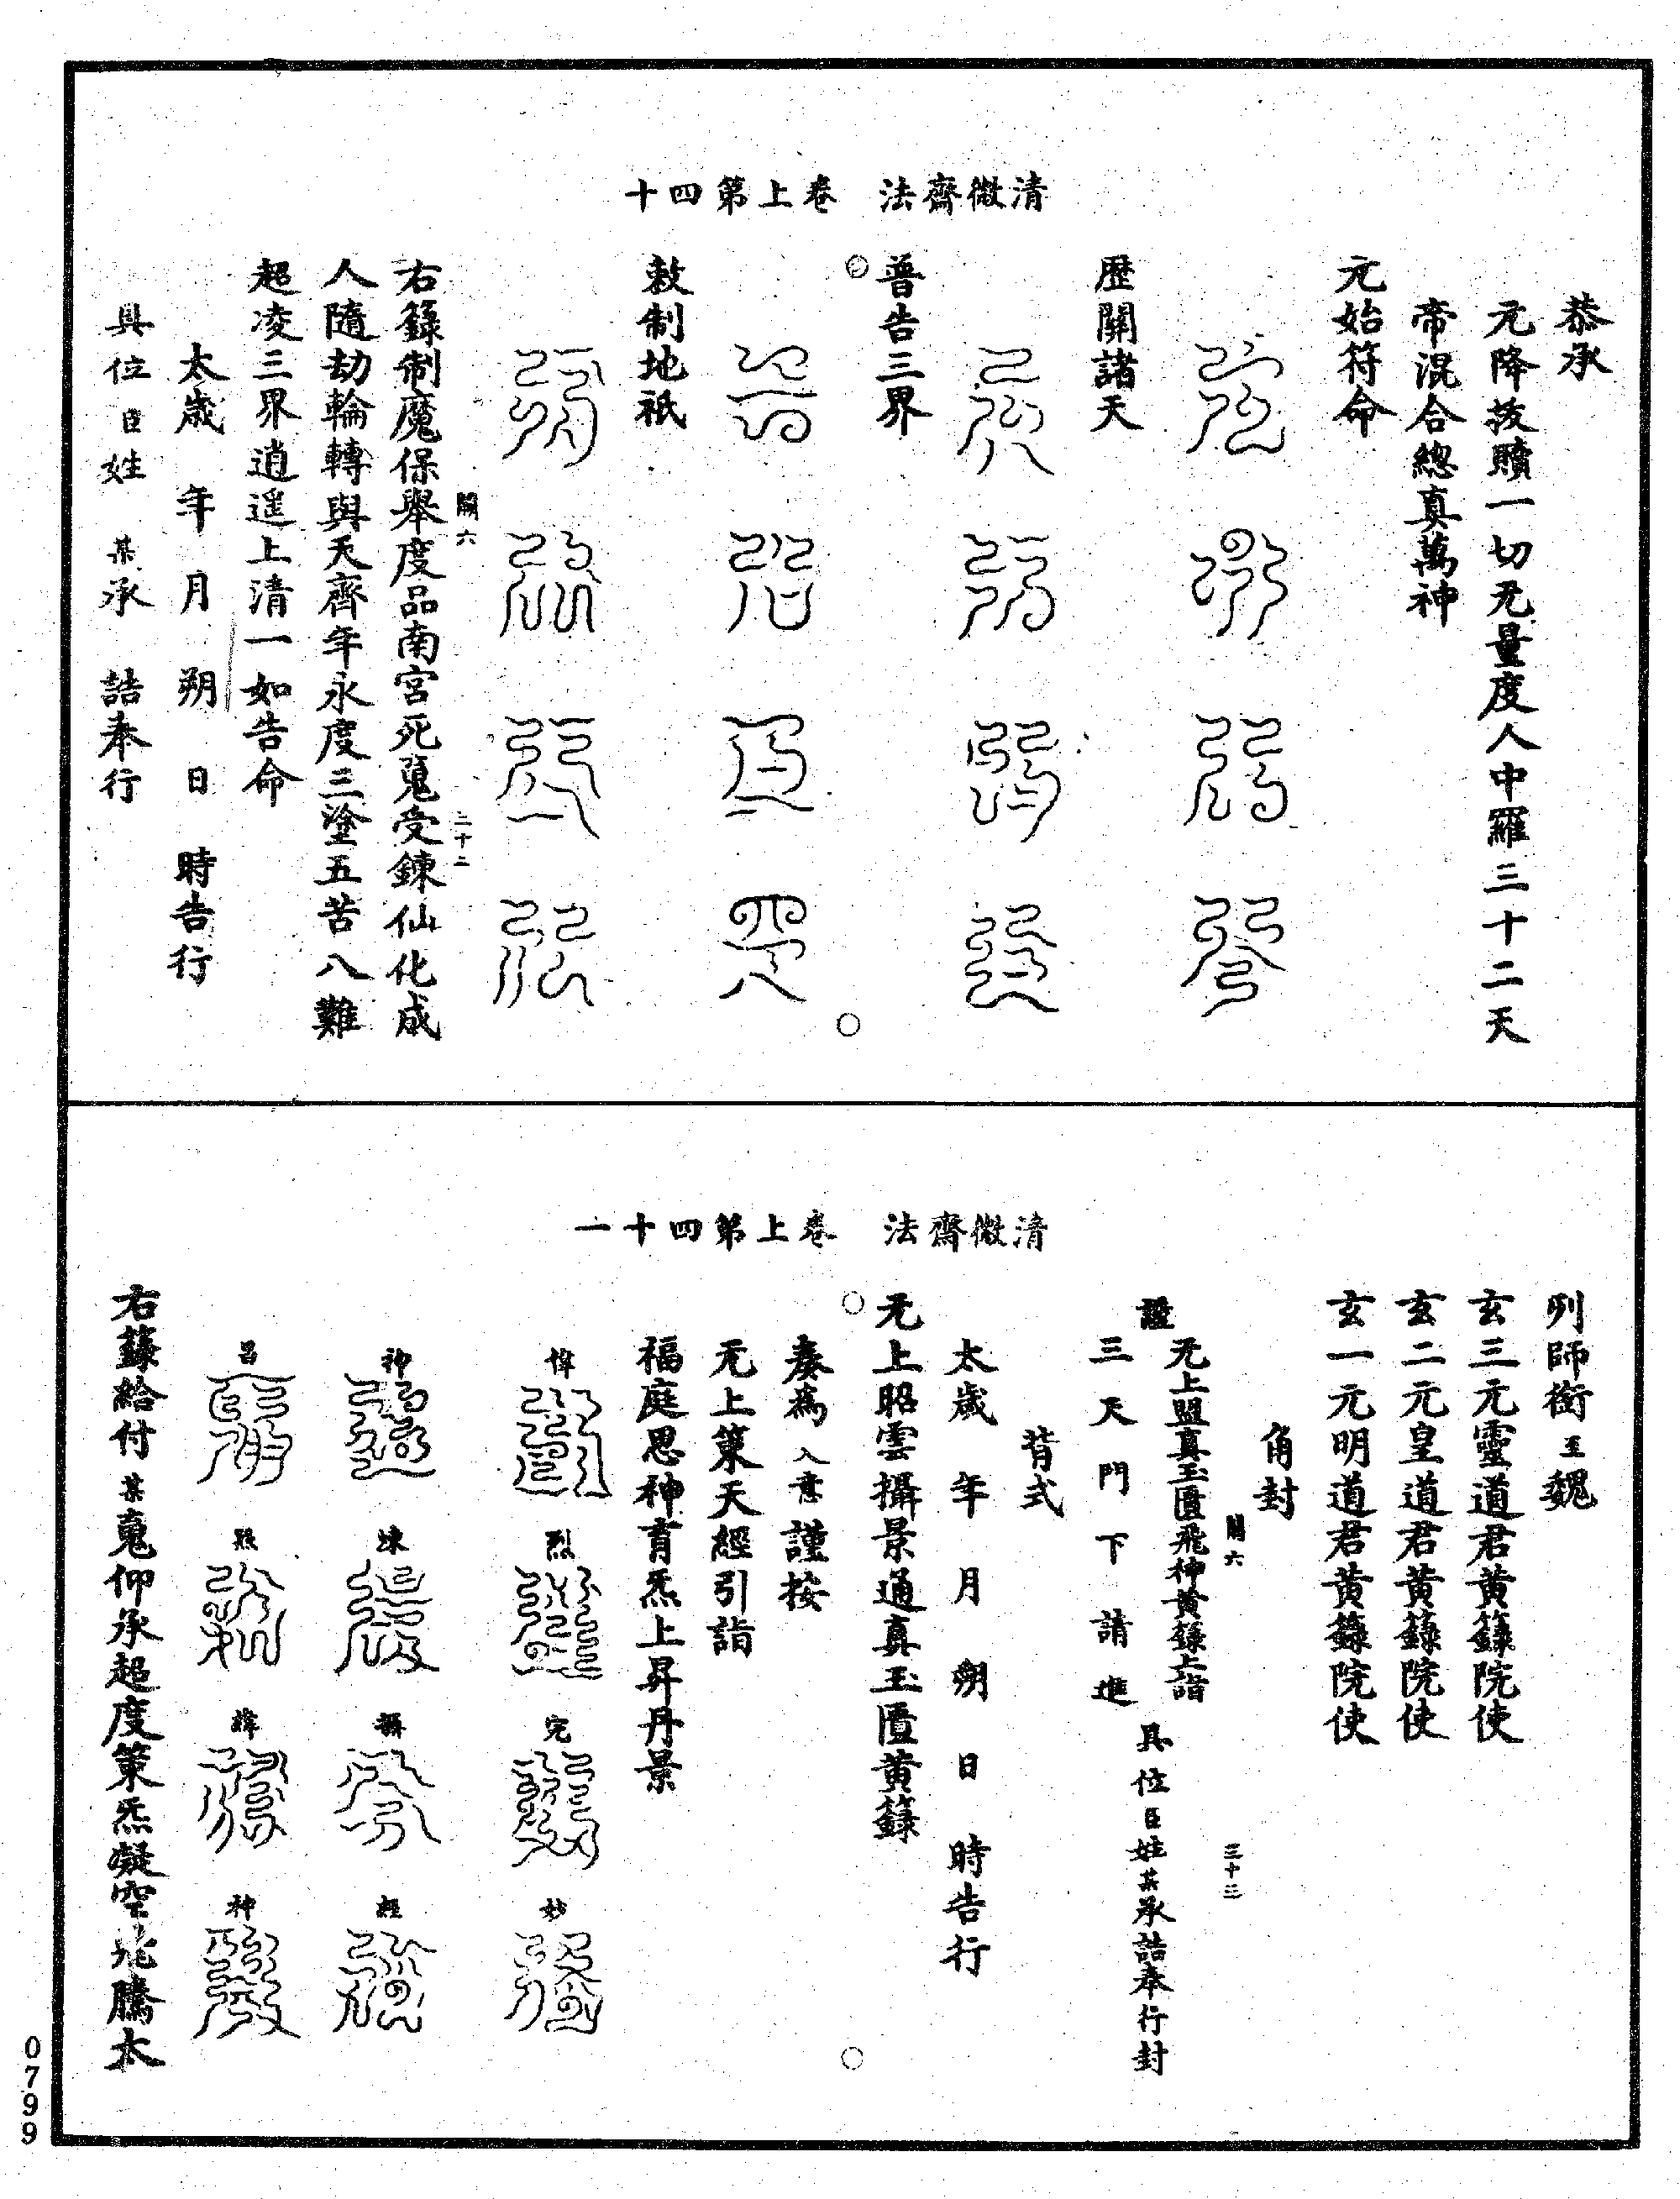 清微齋法　卷上第四十
恭承
元降拔贖一切无量度人中羅三十二天
帝混合總真萬神
元始符命
歷關諸天
普告三界
敕制地祇
關六
三十二
右籙制魔保舉度品南宮死䰟受鍊仙化成
人隨劫輪轉與天齊年永度三塗五苦八難
超凌三界逍遥上清一如告命
太歲　年　月　朔　日　時告行
具位臣姓　某承　誥奉行
清微齋法　卷上第四十一
列師銜至魏
玄三元靈道君黃籙院使
玄二元皇道君黃籙院使
玄一元明道君黃籙院使
角封
關六
三十三
謹
元上盟真玉匱飛神黃籙上詣
三天門下請進
具位臣姓某承誥奉行封
背式
太歲　年　月　朔　日　時告行
无上昭雲攝景通真玉匱黃籙
奏爲入意謹按
无上策天經引詣
福庭思神育炁上昇丹景
烈
完
妙
神
經
呂
神
右籙給付某䰟仰承超度策炁凝空飛騰太
0799